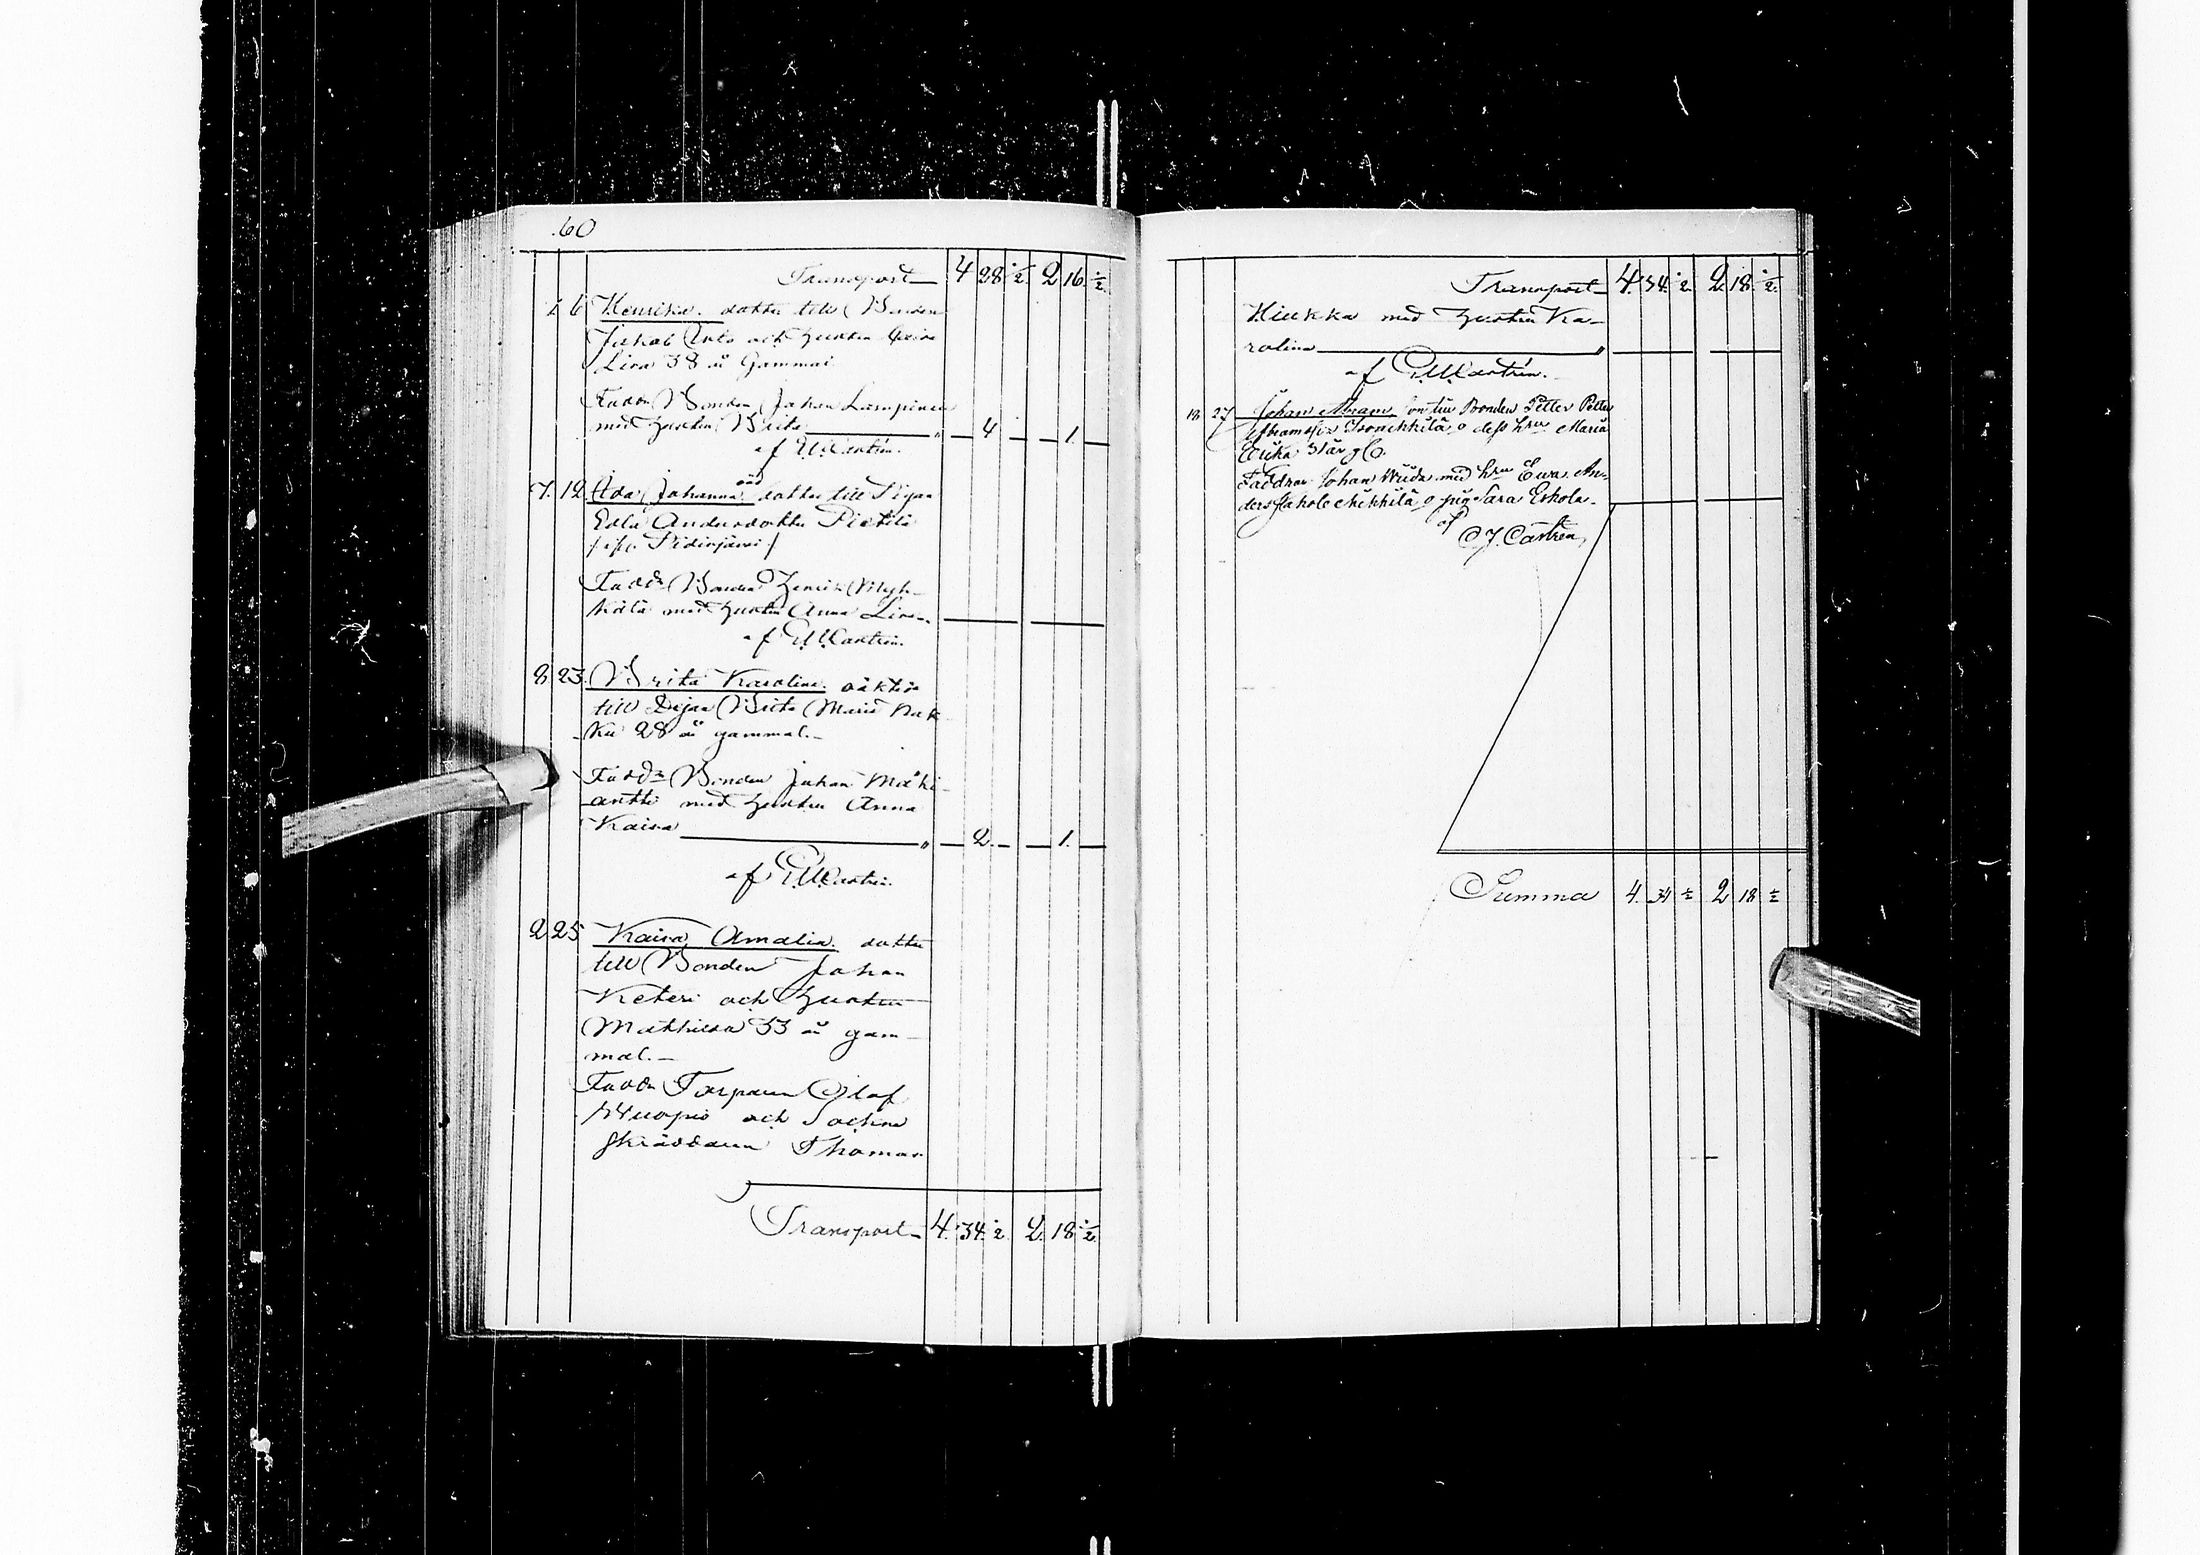 60
Transport 4 28 ½ 2 16 ½
6 Henrika. dotter till Bonden
Jakob och hustrun
Lisa 38 år Gammal
Fadd. Bonden Johan Lampinen
med hustru Brita " 4 1.
af Castrén.
7. 12 Ida Johanna oäd dotter till Pigan
Edla Andersdotter Pietilä
Fadd. Bonden Henrik
med hustru Anna Lisa.
af Castrén.
8 23. Brita Karolina. oäkta
till Pigan Brita Maria
28 år gammal.
Fadd. Bonden Johan Mäki-
antti med hustru Anna
Kaisa " 2. 1.
af Castrén.
2 25 Kaisa Amalia. dotter
till Bonden Johan
Keteri och Hustrun
Mathilda 33 år gam-
mal.
Fadd. Torparen Olof
Kuopio och Sockne
skräddaren Thomas
Transport 4. 34. ½ 2. 18 ½
Transport 4. 34. ½ 2. 18. ½
Hiukka med hustru Ka-
rolina "
af Castrén.
18 27 Johan Abram son till Bonden Petter Petter
Abramsson o dess hru Maria
Erika 31 år g
Faddrar Johan med hru Ewa An-
ders Jakole Mikkilä o pig Sara Eskola.
af
C J. Castrén
Summa 4. 34 ½ 2 18 ½